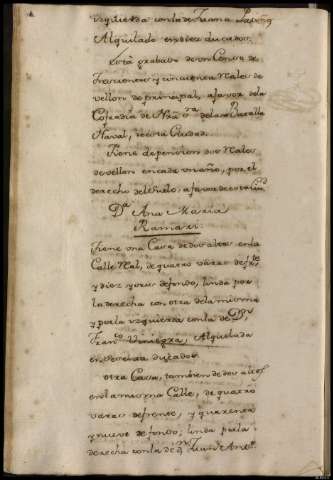 izquierda con la de Juana
Alquilada en diez ducados.
Está grabada de un Censo de
trascientos y cincuenta Rales de
vellon de principal, a favor de la
Cofradia de Nra. Sra. de la Batalla
Naval, de esta Ciudad.
Tiene de pension dos Rales
de vellon en cada un año, por el
derecho del suelo, a favor de esta
Da. Ana Maria
Ramirez.
Tiene una Casa de dos altos en la
Calle Real, de quatro varas de frte.
y diez y seis de fondo, linda por
la derecha con otra de la misma
y por la izquierda con la de Dn.
Franco. Viniegra, Alquilada
en sesenta ducados.
Otra Casa, tambien de dos altos,
en la misma Calle, de quatro
varas de frente, y quarenta
y nueve de fondo; linda por la
derecha con la de Dn. Juan Anto.